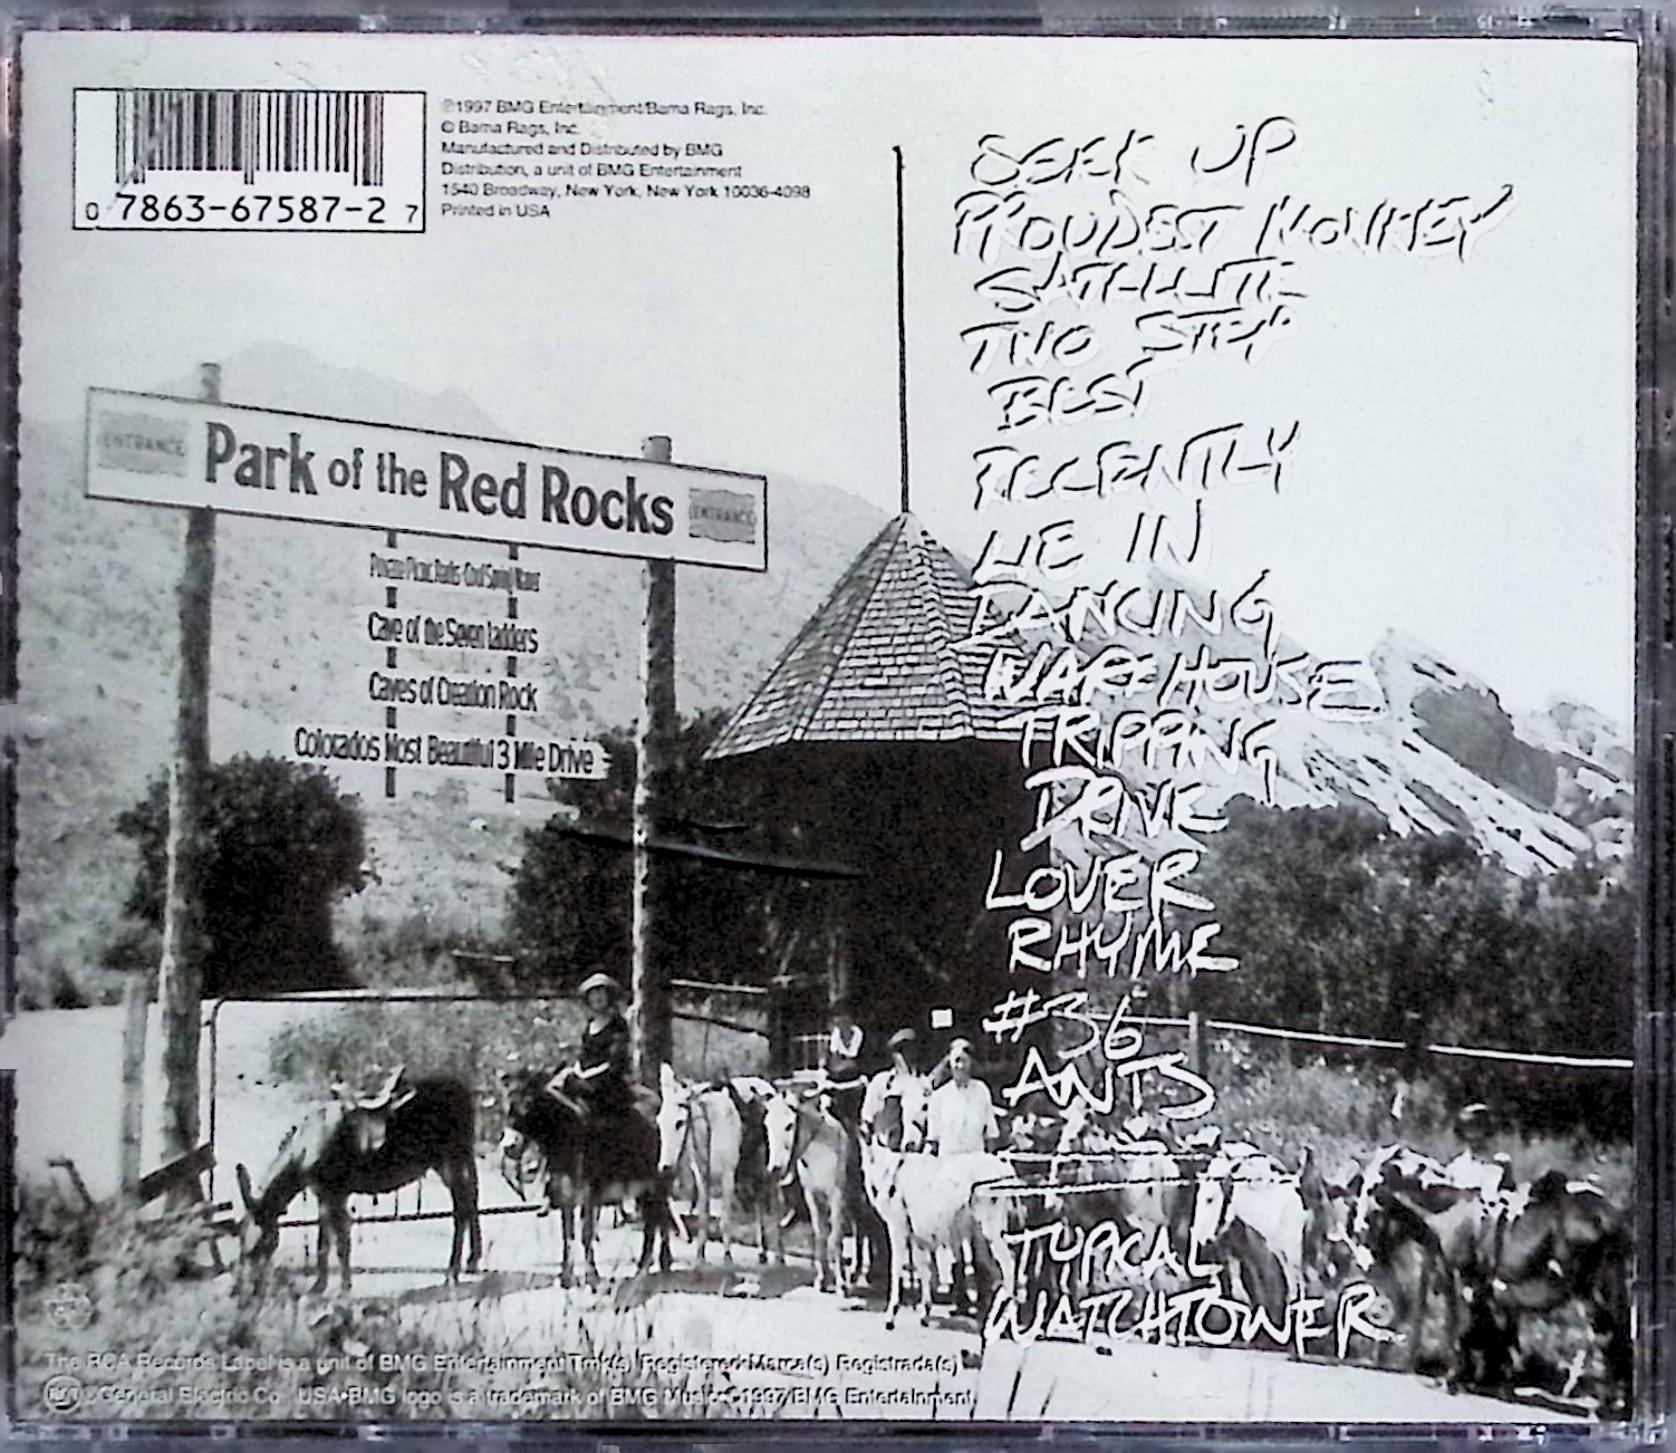 0 7863-67587-2 7
℗1997 BMG Entertainment/Bama Rags, Inc.
© Bama Rags, Inc.
Manufactured and Distributed by BMG
Distribution, a unit of BMG Entertainment
1540 Broadway, New York, New York 10036-4098
Printed in USA
SEEK UP
PROUDEST MONKEY
SATELLITE
TWO STEP
BEST
RECENTLY
LIE IN
DANCING
WAREHOUSE
TRIPPING
DRIVE
LOVER
RHYME
#36
ANTS
TYPICAL
WATCHTOWER
ENTRANCE Park of the Red Rocks ENTRANCE
Private Picnic Parks Cool Spring Water
Cave of the Seven Ladders
Caves of Creation Rock
Colorados Most Beautiful 3 Mile Drive
N
The RCA Records Label is a unit of BMG Entertainment Tmk(s) Registered Marca(s) Registrada(s)
General Electric Co., USA BMG logo is a trademark of BMG Music ©1997 BMG Entertainment